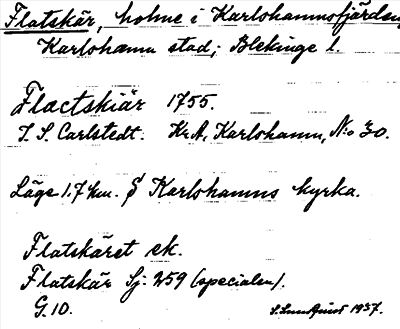 Flatskär, holme i Karlshamnsfjärden,
Karlshamn stad; Blekinge l.
Flactskiär 1755.
I. S. Carlstedt. Kr.A. Karlshamn, N:o 30.
Läge 1.7 km. S Karlshamns kyrka.
Flatskäret ek.
Flatskär Sj. 259 (specialen).
G. 10.
S. Lundquist 1937.